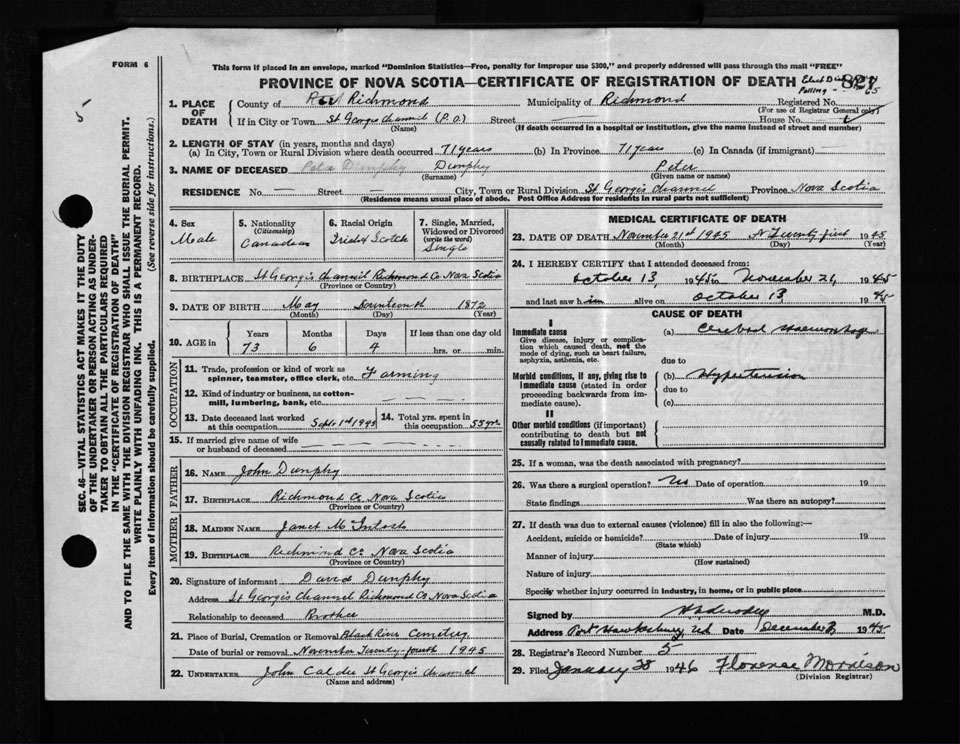 FORM 6
This form if placed in an envelope, marked "Dominion Statistics—Free, penalty for improper use $300," and properly addressed will pass through the mail "FREE"
PROVINCE OF NOVA SCOTIA—CERTIFICATE OF REGISTRATION OF DEATH
Polling - 65
5
SEC. 46—VITAL STATISTICS ACT MAKES IT THE DUTY
OF THE UNDERTAKER OR PERSON ACTING AS UNDER-
TAKER TO OBTAIN ALL THE PARTICULARS REQUIRED
IN THE "CERTIFICATE OF REGISTRATION OF DEATH"
AND TO FILE THE SAME WITH THE DIVISION REGISTRAR WHO SHALL ISSUE THE BURIAL PERMIT.
WRITE PLAINLY WITH UNFADING INK. THIS IS A PERMANENT RECORD.
Every item of information should be carefully supplied. (See reverse side for instructions.)
1. PLACE OF DEATH County of Richmond Municipality of Richmond Registered No.
(For use of Registrar General only)
If in City or Town St Georges Channel (P.O.) Street House No.
(Name) (If death occurred in a hospital or institution, give the name instead of street and number)
2. LENGTH OF STAY (in years, months and days)
(a) In City, Town or Rural Division where death occurred 71 years (b) In Province 71 years (c) In Canada (if immigrant) —
3. NAME OF DECEASED Dunphy Peter
(Surname) (Given name or names)
RESIDENCE No. — Street — City, Town or Rural Division St Georges Channel Province Nova Scotia
(Residence means usual place of abode. Post Office Address for residents in rural parts not sufficient)
4. Sex Male
5. Nationality (Citizenship) Canadian
6. Racial Origin Irish Scotch
7. Single, Married, Widowed or Divorced (write the word) Single
8. BIRTHPLACE St Georges Channel Richmond Co. Nova Scotia
(Province or Country)
9. DATE OF BIRTH May 1872
(Month) (Day) (Year)
10. AGE in Years Months Days If less than one day old
73 6 4 hrs. or min.
OCCUPATION
11. Trade, profession or kind of work as spinner, teamster, office clerk, etc. Farming
12. Kind of industry or business, as cotton-mill, lumbering, bank, etc. — — —
13. Date deceased last worked at this occupation Sept 1st 1945
14. Total yrs. spent in this occupation 55 yrs.
15. If married give name of wife or husband of deceased
FATHER
16. NAME John Dunphy
17. BIRTHPLACE Richmond Co Nova Scotia
(Province or Country)
MOTHER
18. MAIDEN NAME Janet McIntosh
19. BIRTHPLACE Richmond Co Nova Scotia
(Province or Country)
20. Signature of informant David Dunphy
Address St Georges Channel Richmond Co. Nova Scotia
Relationship to deceased Brother
21. Place of Burial, Cremation or Removal Black River Cemetery
Date of burial or removal November Twenty-fourth 1945
22. UNDERTAKER John Calder St Georges Channel
(Name and address)
MEDICAL CERTIFICATE OF DEATH
23. DATE OF DEATH November 21st 1945 Twenty first 1945
(Month) (Day) (Year)
24. I HEREBY CERTIFY that I attended deceased from:
October 13, 1945 to November 21, 1945
and last saw him alive on October 13 1945
CAUSE OF DEATH
I
Immediate cause
Give disease, injury or complication which caused death, not the mode of dying, such as heart failure, asphyxia, asthenia, etc.
(a) Cerebral Haemorrhage
due to
Morbid conditions, if any, giving rise to immediate cause (stated in order proceeding backwards from immediate cause).
(b) Hypertension
due to
(c)
II
Other morbid conditions (if important) contributing to death but not causally related to immediate cause.
25. If a woman, was the death associated with pregnancy?
26. Was there a surgical operation? No Date of operation 19
State findings Was there an autopsy?
27. If death was due to external causes (violence) fill in also the following:—
Accident, suicide or homicide? Date of injury 19
(State which)
Manner of injury
(How sustained)
Nature of injury
Specify whether injury occurred in industry, in home, or in public place
Signed by M.D.
Address Port Hawkesbury, NS Date December 1945
28. Registrar's Record Number 5
29. Filed January 28 1946 Florence Morrison
(Division Registrar)